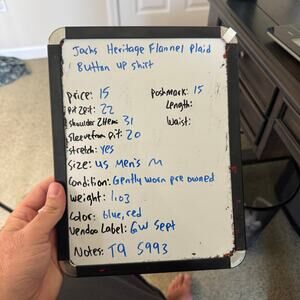 Jachs Heritage Flannel Plaid
Button up shirt
Price: 15
Poshmark: 15
Pit 2 pit: 22
Length:
Shoulder 2 Hem: 31
Waist:
Sleeve from pit: 20
Stretch: yes
Size: US Men's M
Condition: Gently worn pre owned
Weight: 1.03
Color: blue, red
Vendoo Label: GW Sept
Notes: T9 5993